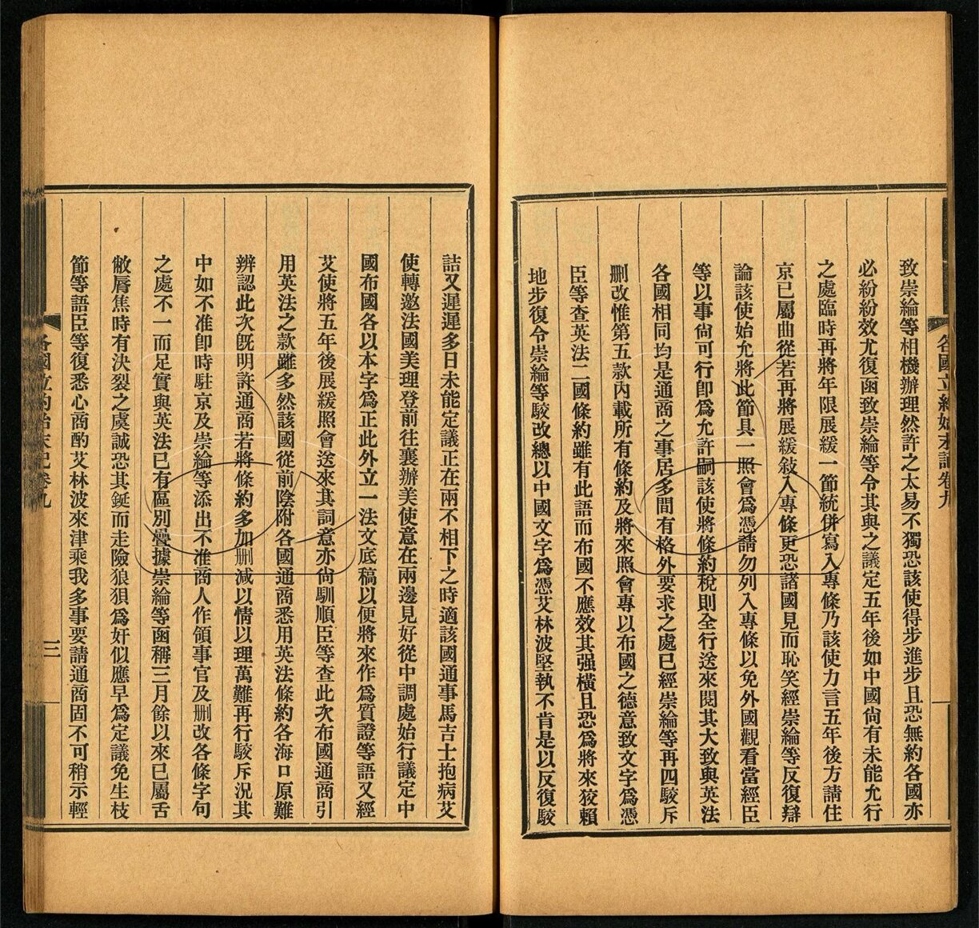 致崇綸等相機辦理然許之太易不獨恐該使得步進步且恐無約各國亦
必紛紛效尤復函致崇綸等令其與之議定五年後如中國尙有未能允行
之處臨時再將年限展緩一節統併寫入專條乃該使力言五年後方請住
京已屬曲從若再將展緩敍入專條更恐諸國見而恥笑經崇綸等反復辯
論該使始允將此節具一照會爲憑請勿列入專條以免外國觀看當經臣
等以事尙可行卽爲允許嗣該使將條約稅則全行送來閱其大致與英法
各國相同均是通商之事居多間有格外要求之處已經崇綸等再四駁斥
刪改惟第五款內載所有條約及將來照會專以布國之德意致文字爲憑
臣等查英法二國條約雖有此語而布國不應效其强橫且恐爲將來狡賴
地步復令崇綸等駁改總以中國文字爲憑艾林波堅執不肯是以反復駁
各國立約始末記卷九
詰又遲遲多日未能定議正在兩不相下之時適該國通事馬吉士抱病艾
使轉邀法國美理登前往襄辦美使意在兩邊見好從中調處始行議定中
國布國各以本字爲正此外立一法文底稿以便將來作爲質證等語又經
艾使將五年後展緩照會送來其詞意亦尙馴順臣等查此次布國通商引
用英法之款雖多然該國從前陰附各國通商悉用英法條約各海口原難
辨認此次旣明許通商若將條約多加刪減以情以理萬難再行駁斥況其
中如不准卽時駐京及崇綸等添出不准商人作領事官及刪改各條字句
之處不一而足實與英法已有區別疊據崇綸等函稱三月餘以來已屬舌
敝脣焦時有決裂之虞誠恐其鋌而走險狼狽爲奸似應早爲定議免生枝
節等語臣等復悉心商酌艾林波來津乘我多事要請通商固不可稍示輕
各國立約始末記卷九
三